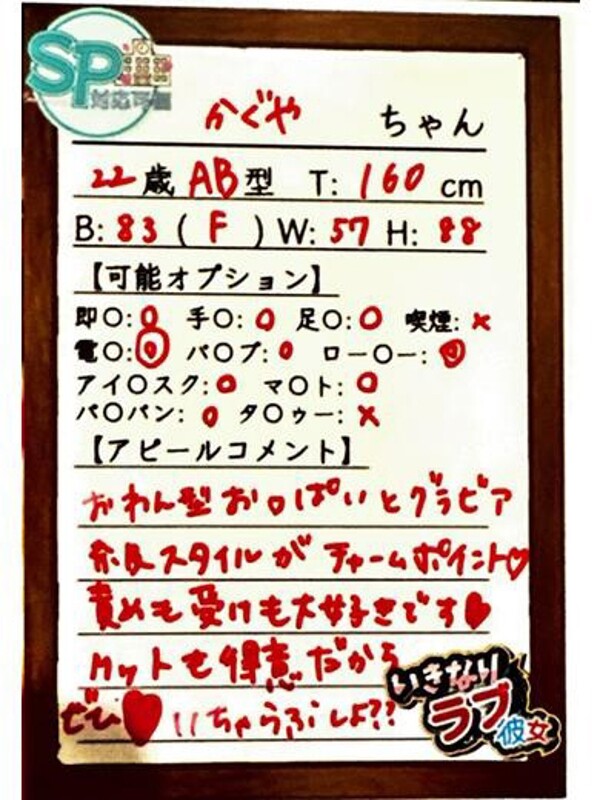 SP
対応可能
かぐや ちゃん
22歳 AB型 T: 160 cm
B: 83 ( F ) W: 57 H: 88
【可能オプション】
即〇: 〇 手〇: 〇 足〇: 〇 喫煙: ×
電〇: ◎ バ〇ブ: 〇 ロー〇ー: ◎
アイ〇スク: 〇 マ〇ト: 〇
パ〇パン: 〇 タ〇ゥー: ×
【アピールコメント】
おわん型おっぱいとグラビア
スタイルがチャームポイント♡
責めも受けも大好きです♥
も得意だから
ぜひ♥いちゃらぶしよ??
いきなり
ラブ
彼女